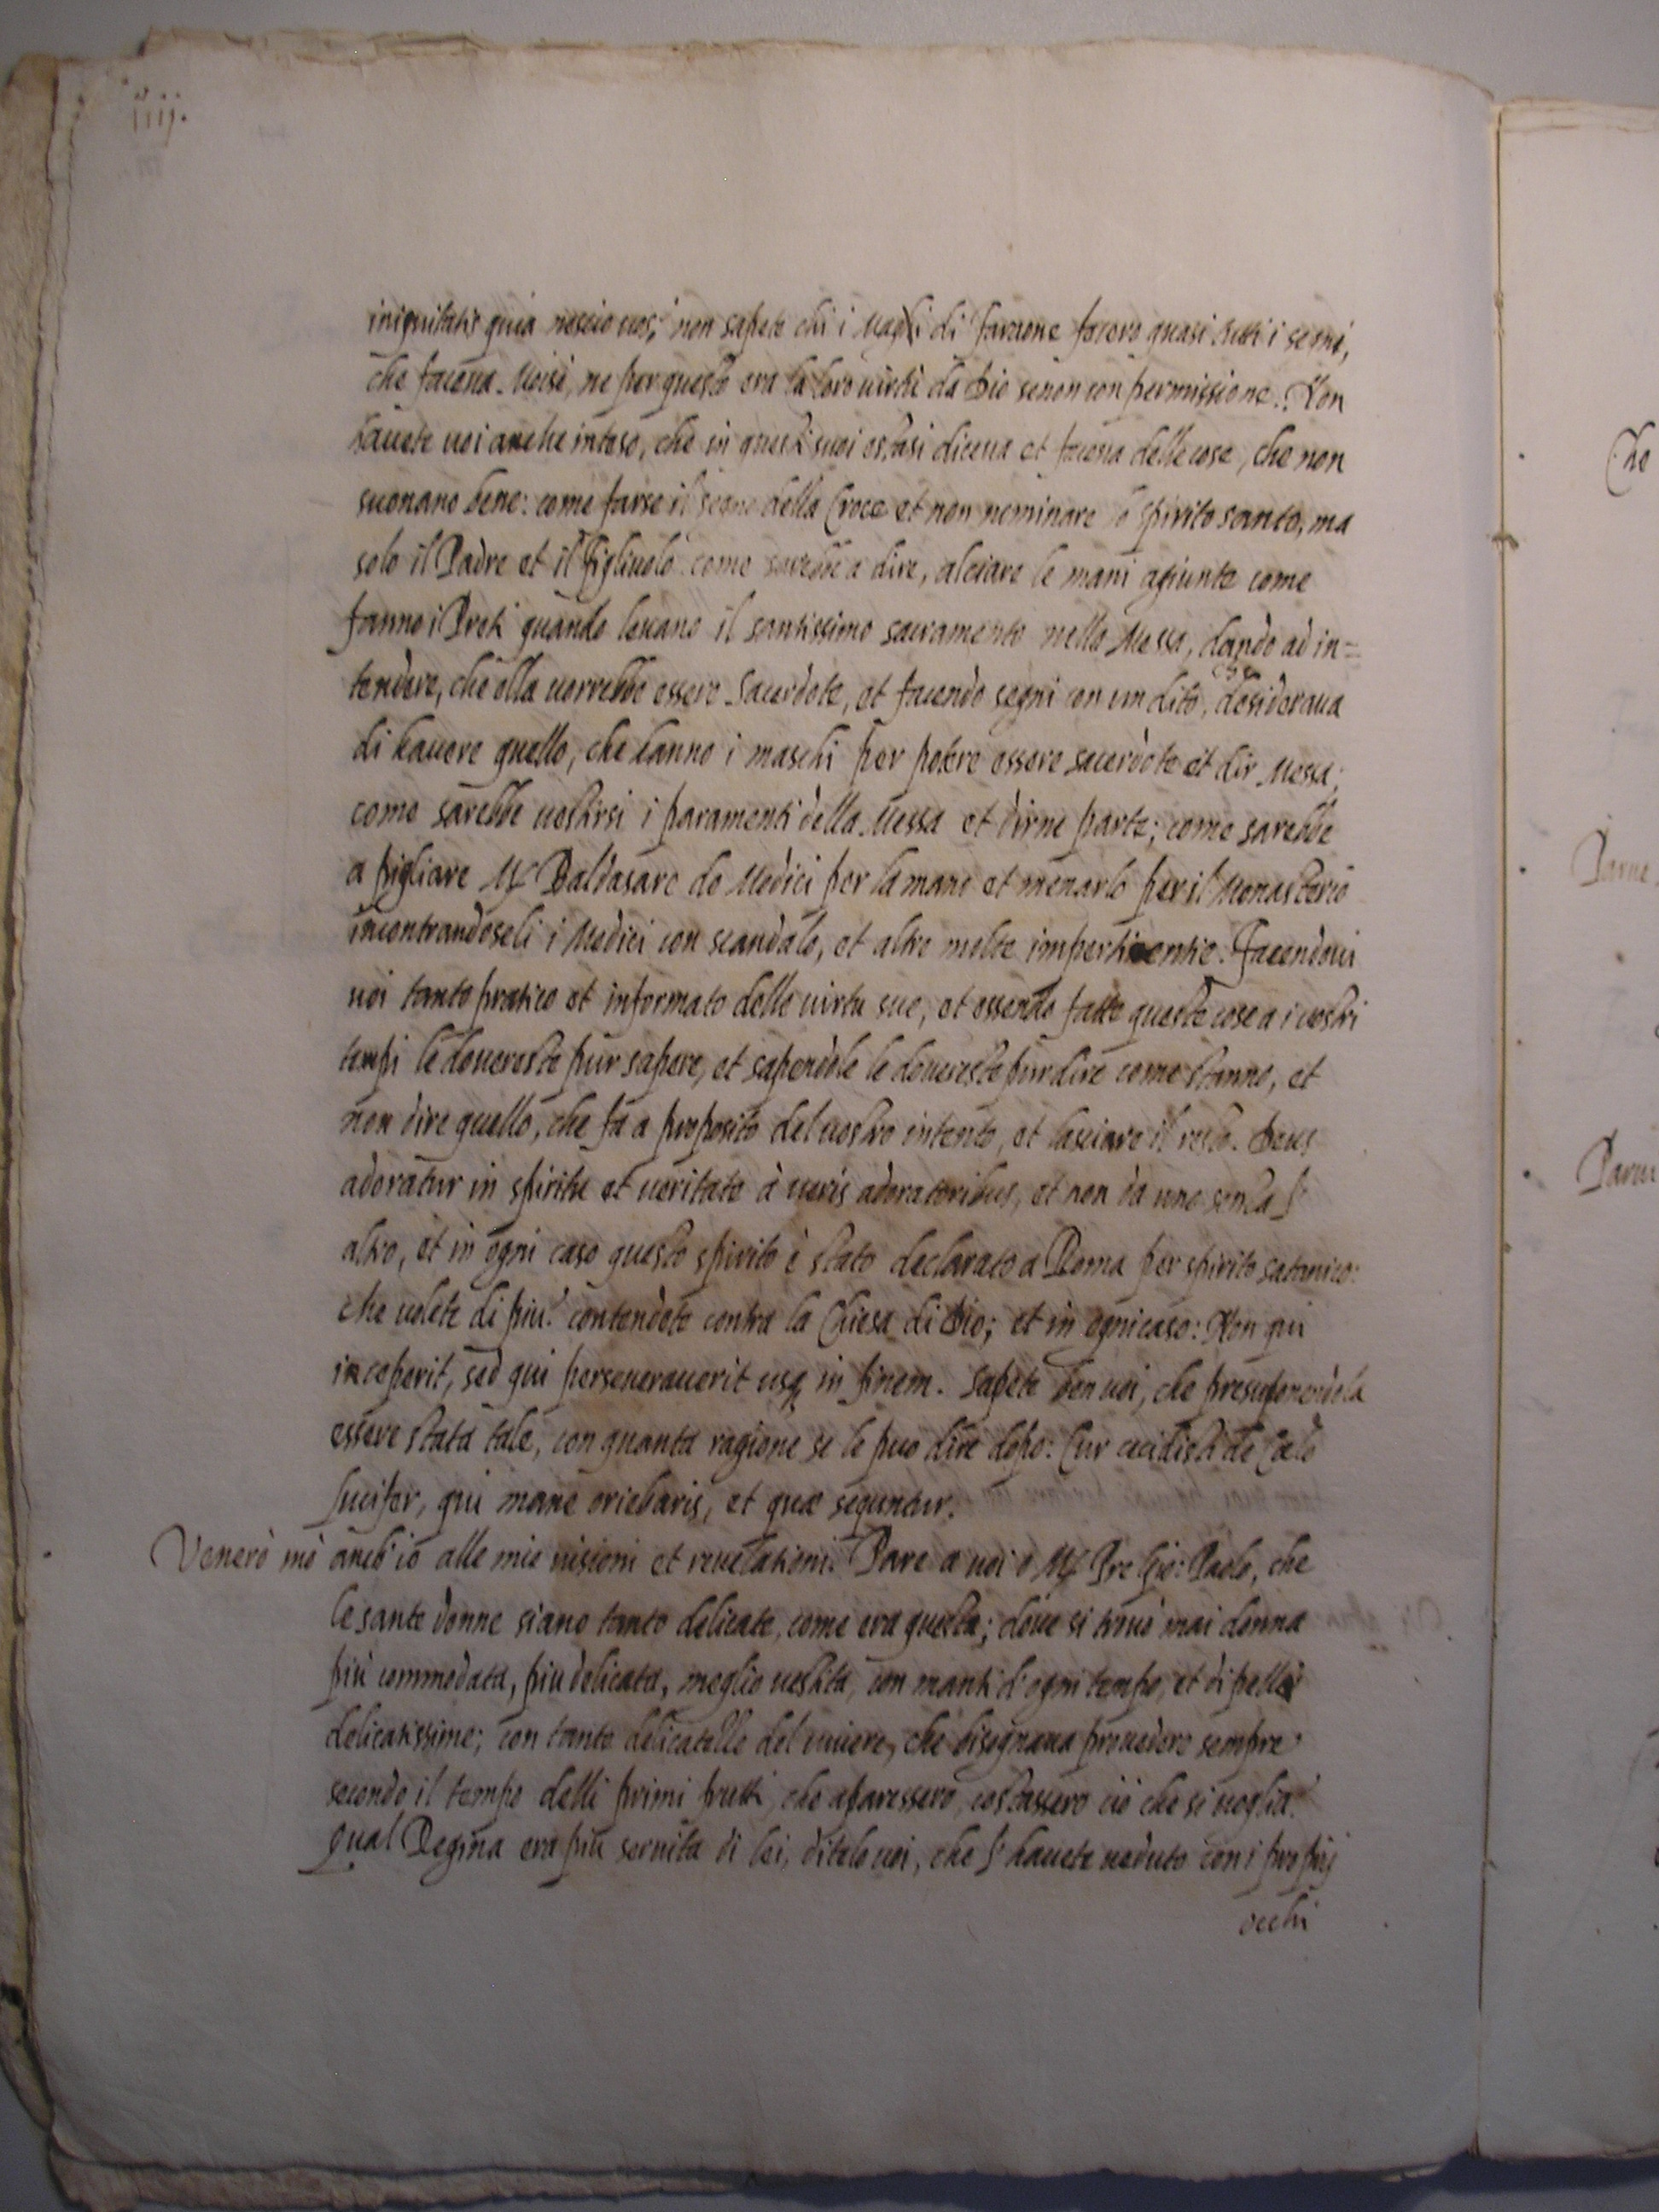 iiij.
iniquitatis quia nescio vos; non sapete chi i Magi di faraone fecero quasi tutti i segni,
che faceua Moisè, ne per questo era la loro uirtù da Dio senon con permissione. Non
hauete uoi anche inteso, che in questi suoi estasi diceua et faceua delle cose, che non
suonano bene: come farse il segno della Croce et non nominare lo spirito santo, ma
solo il Padre et il figliuolo: come sarebbe a dire, alciare le mani agiunte come
fanno i Preti quando leuano il santissimo sacramento nella Messa, dando ad in=
tendere, che ella uorrebbe essere sacerdote, et facendo segni con un dito, che desideraua
di hauere quello, che hanno i maschi per potere essere sacerdote et dir Messa;
come sarebbe uestirsi i paramenti della Messa et dirne parte; come sarebbe
a pigliare Mr Baldasare de Medici per la mano et menarlo per il Monasterio
incontrandoseli i Medici con scandalo, et altre molte impertinentie. Facendoui
uoi tanto pratico et informato delle uirtu sue, et essendo fatte queste cose a i uostri
tempi le douereste pur sapere, et sapendole le douereste pur dire come stanno, et
non dire quello, che fa a proposito del uostro intento, et lasciare il resto. Deus
adoratur in spiritu et ueritate à ueris adoratoribus, et non da uno senza l'
altro, et in ogni caso questo spirito è stato declarato a Roma per spirito satanico:
che uolete di piu? contendete contra la Chiesa di Dio; et in ogni caso: Non qui
inceperit, sed qui perseuerauerit usq in finem. Sapete ben uoi, che presuponendola
essere stata tale, con quanta ragione se le puo dire dopo: Cur cecidisti de Cælo
lucifer, qui mane oriebaris, et quæ sequntur.
Venerò mò anch' io alle mie uisioni et reuelationi. Pare a uoi o Mr Pre Gio: Paolo, che
le sante donne siano tanto delicate, come era questa; doue si trouò mai donna
più commodata, piu delicata, meglio uestita, con manti d' ogni tempo, et di pelle
delicatissime; con tante delicatelle del uiuere, che bisognaua prouedere sempre
secondo il tempo delli primi frutti, che aparessero, costassero ciò che si uoglia?
Qual Regina era più seruita di lei, ditelo uoi, che l' hauete ueduto con i proprij
occhi
Che
Parue